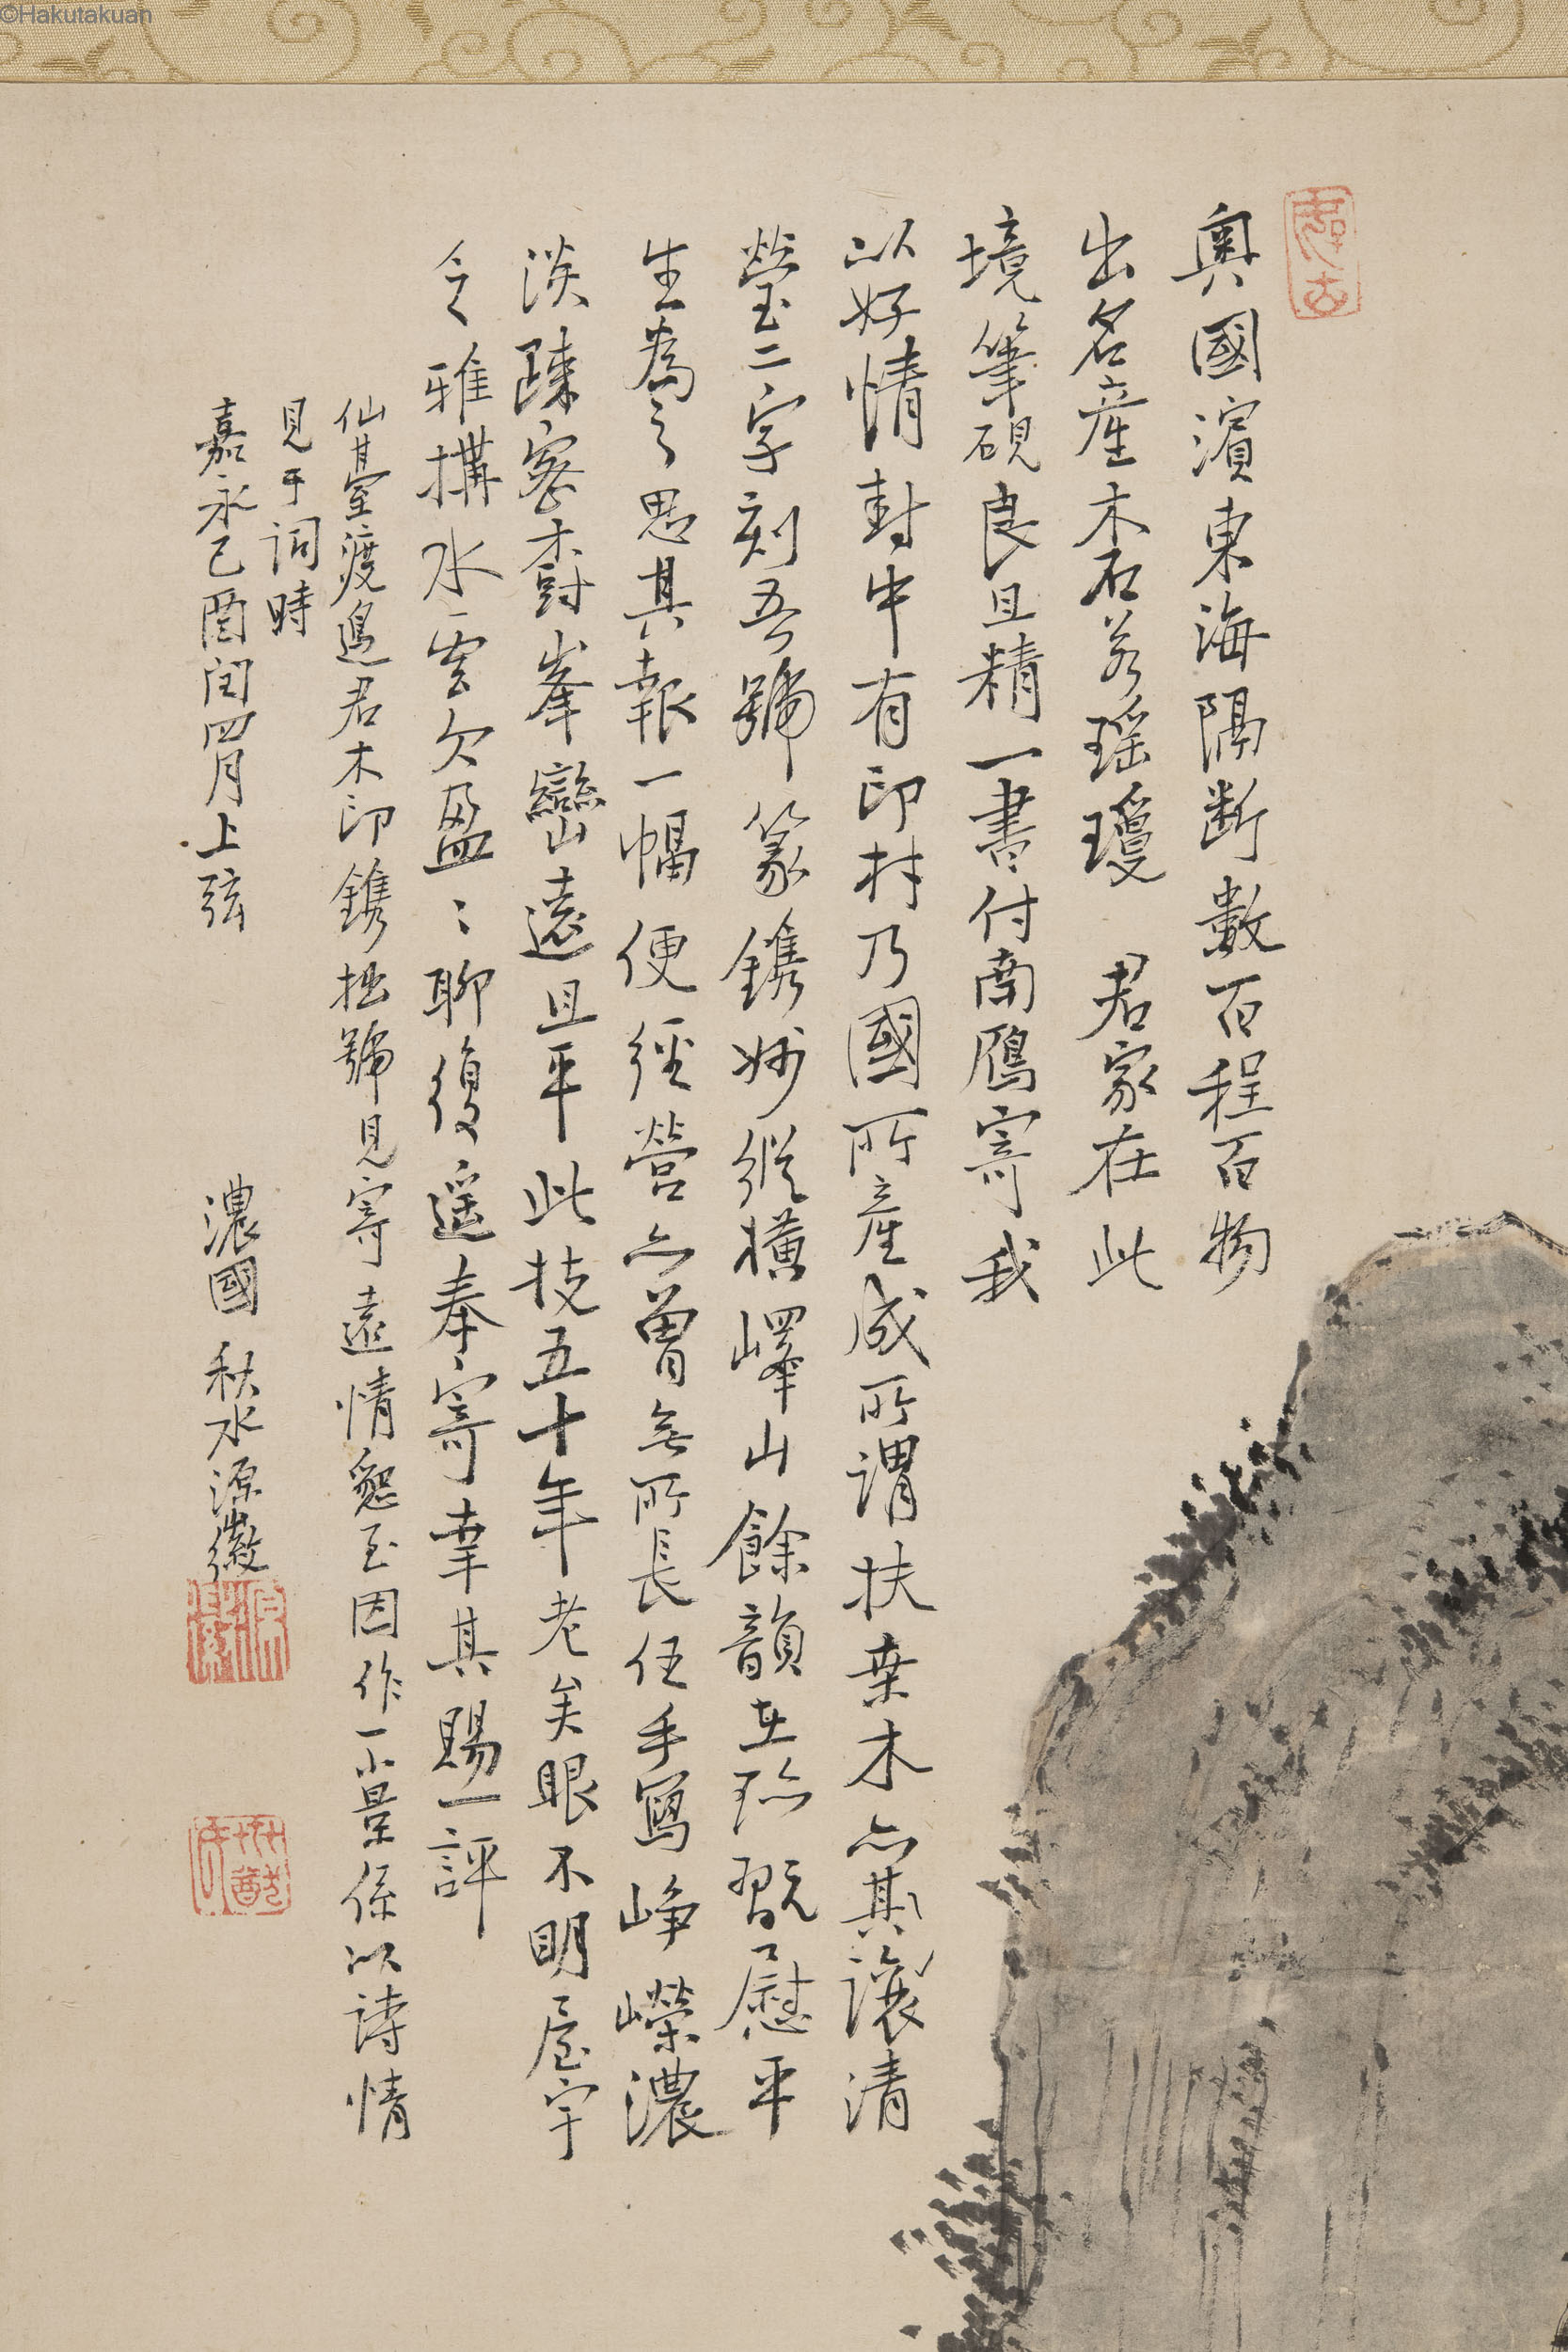 ©Hakutakuan
奥國濵東海隔断數百程百物
出名産木石若瑶瓊 君家在此
境筆硯良且精一書付南鴈寄我
以好情封中有印材乃國所産成所謂扶桒木亦其讓清
瑩玉二字刻吾號篆鐫妙縱横嶧山餘韻在珎翫慰平
生為之思其報一幅便經營亦曽無所長任手寫崢嶸濃
淡疎密樹峯巒遠且平此技五十年老矣眼不明屋宇
令雅搆水雲欠盈〻聊復遥奉寄幸其賜一評
仙臺渡邉君木印鐫拙號見寄遠情懇至因作一小景係以詩情
見于詞時
嘉永己酉閏四月上弦
濃國 秋水源徽